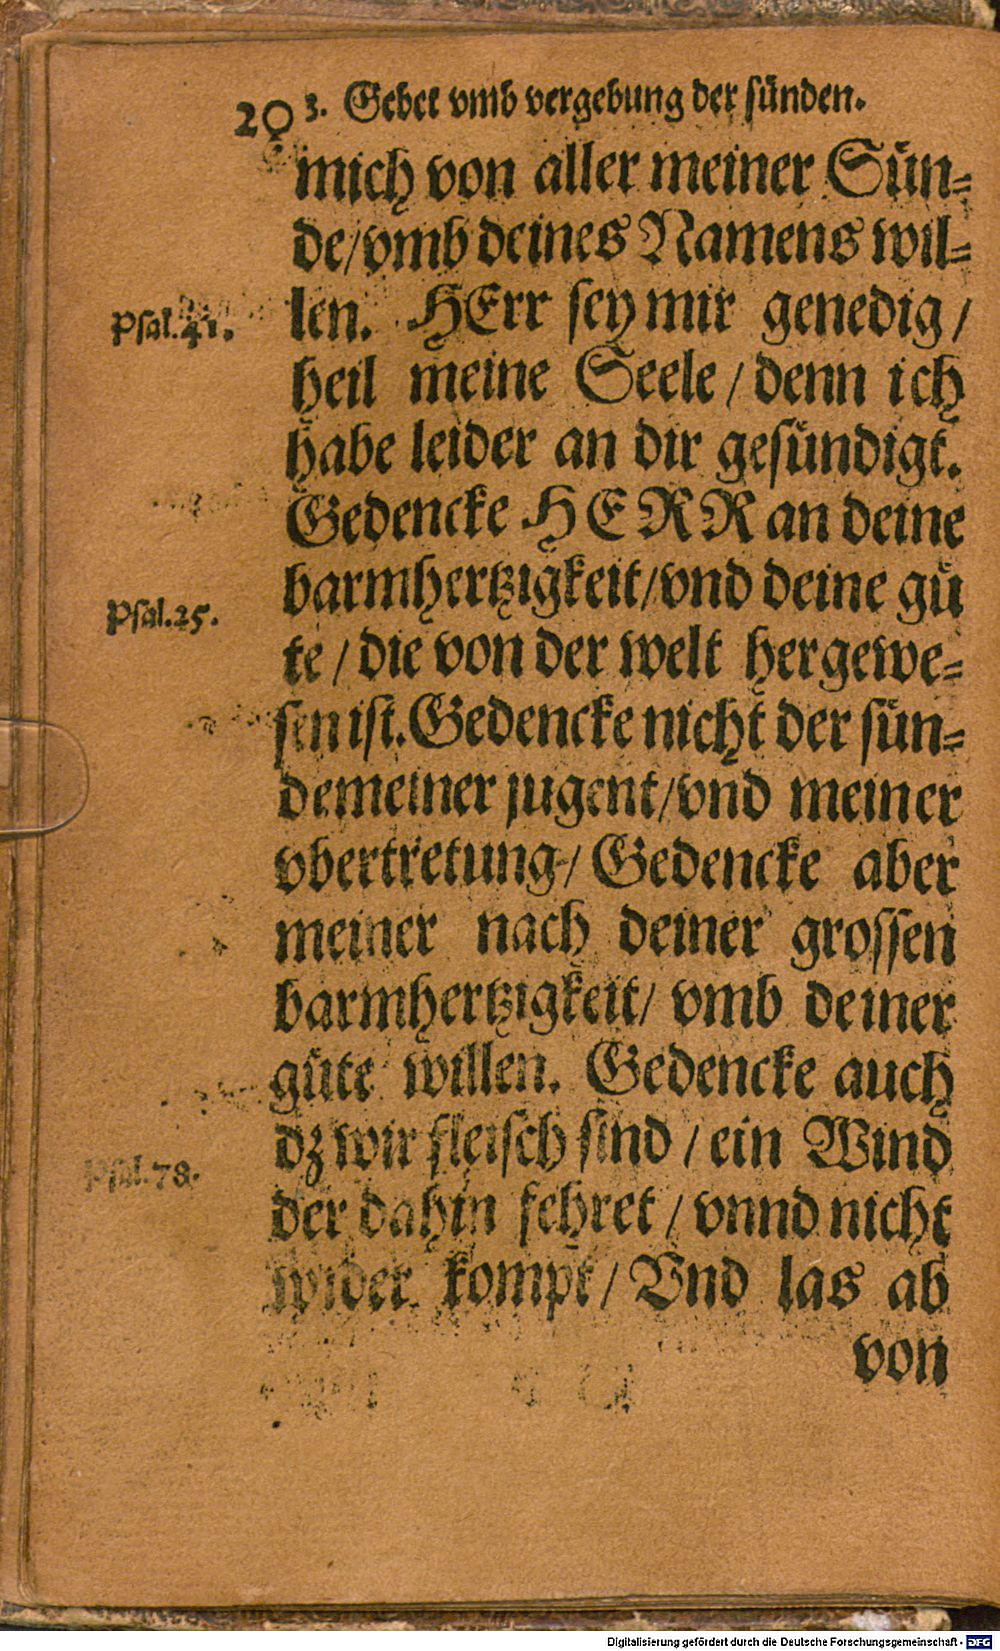 20 3. Gebet vmb vergebung der sünden.
mich von aller meiner Sün-
de/vmb deines Namens wil-
Psal.41. len. HErr sey mir genedig/
heil meine Seele/denn ich
habe leider an dir gesündigt.
Gedencke HERR an deine
Psal.25. barmhertzigkeit/vnd deine gü
te/die von der welt her gewe-
sen ist. Gedencke nicht der sün-
de meiner jugent/vnd meiner
vbertretung/Gedencke aber
meiner nach deiner grossen
barmhertzigkeit/vmb deiner
güte willen. Gedencke auch
Psal.78. dz wir fleisch sind/ein Wind
der dahin fehret/vnnd nicht
wider kompt/Vnd las ab
von
Digitalisierung gefördert durch die Deutsche Forschungsgemeinschaft - DFG